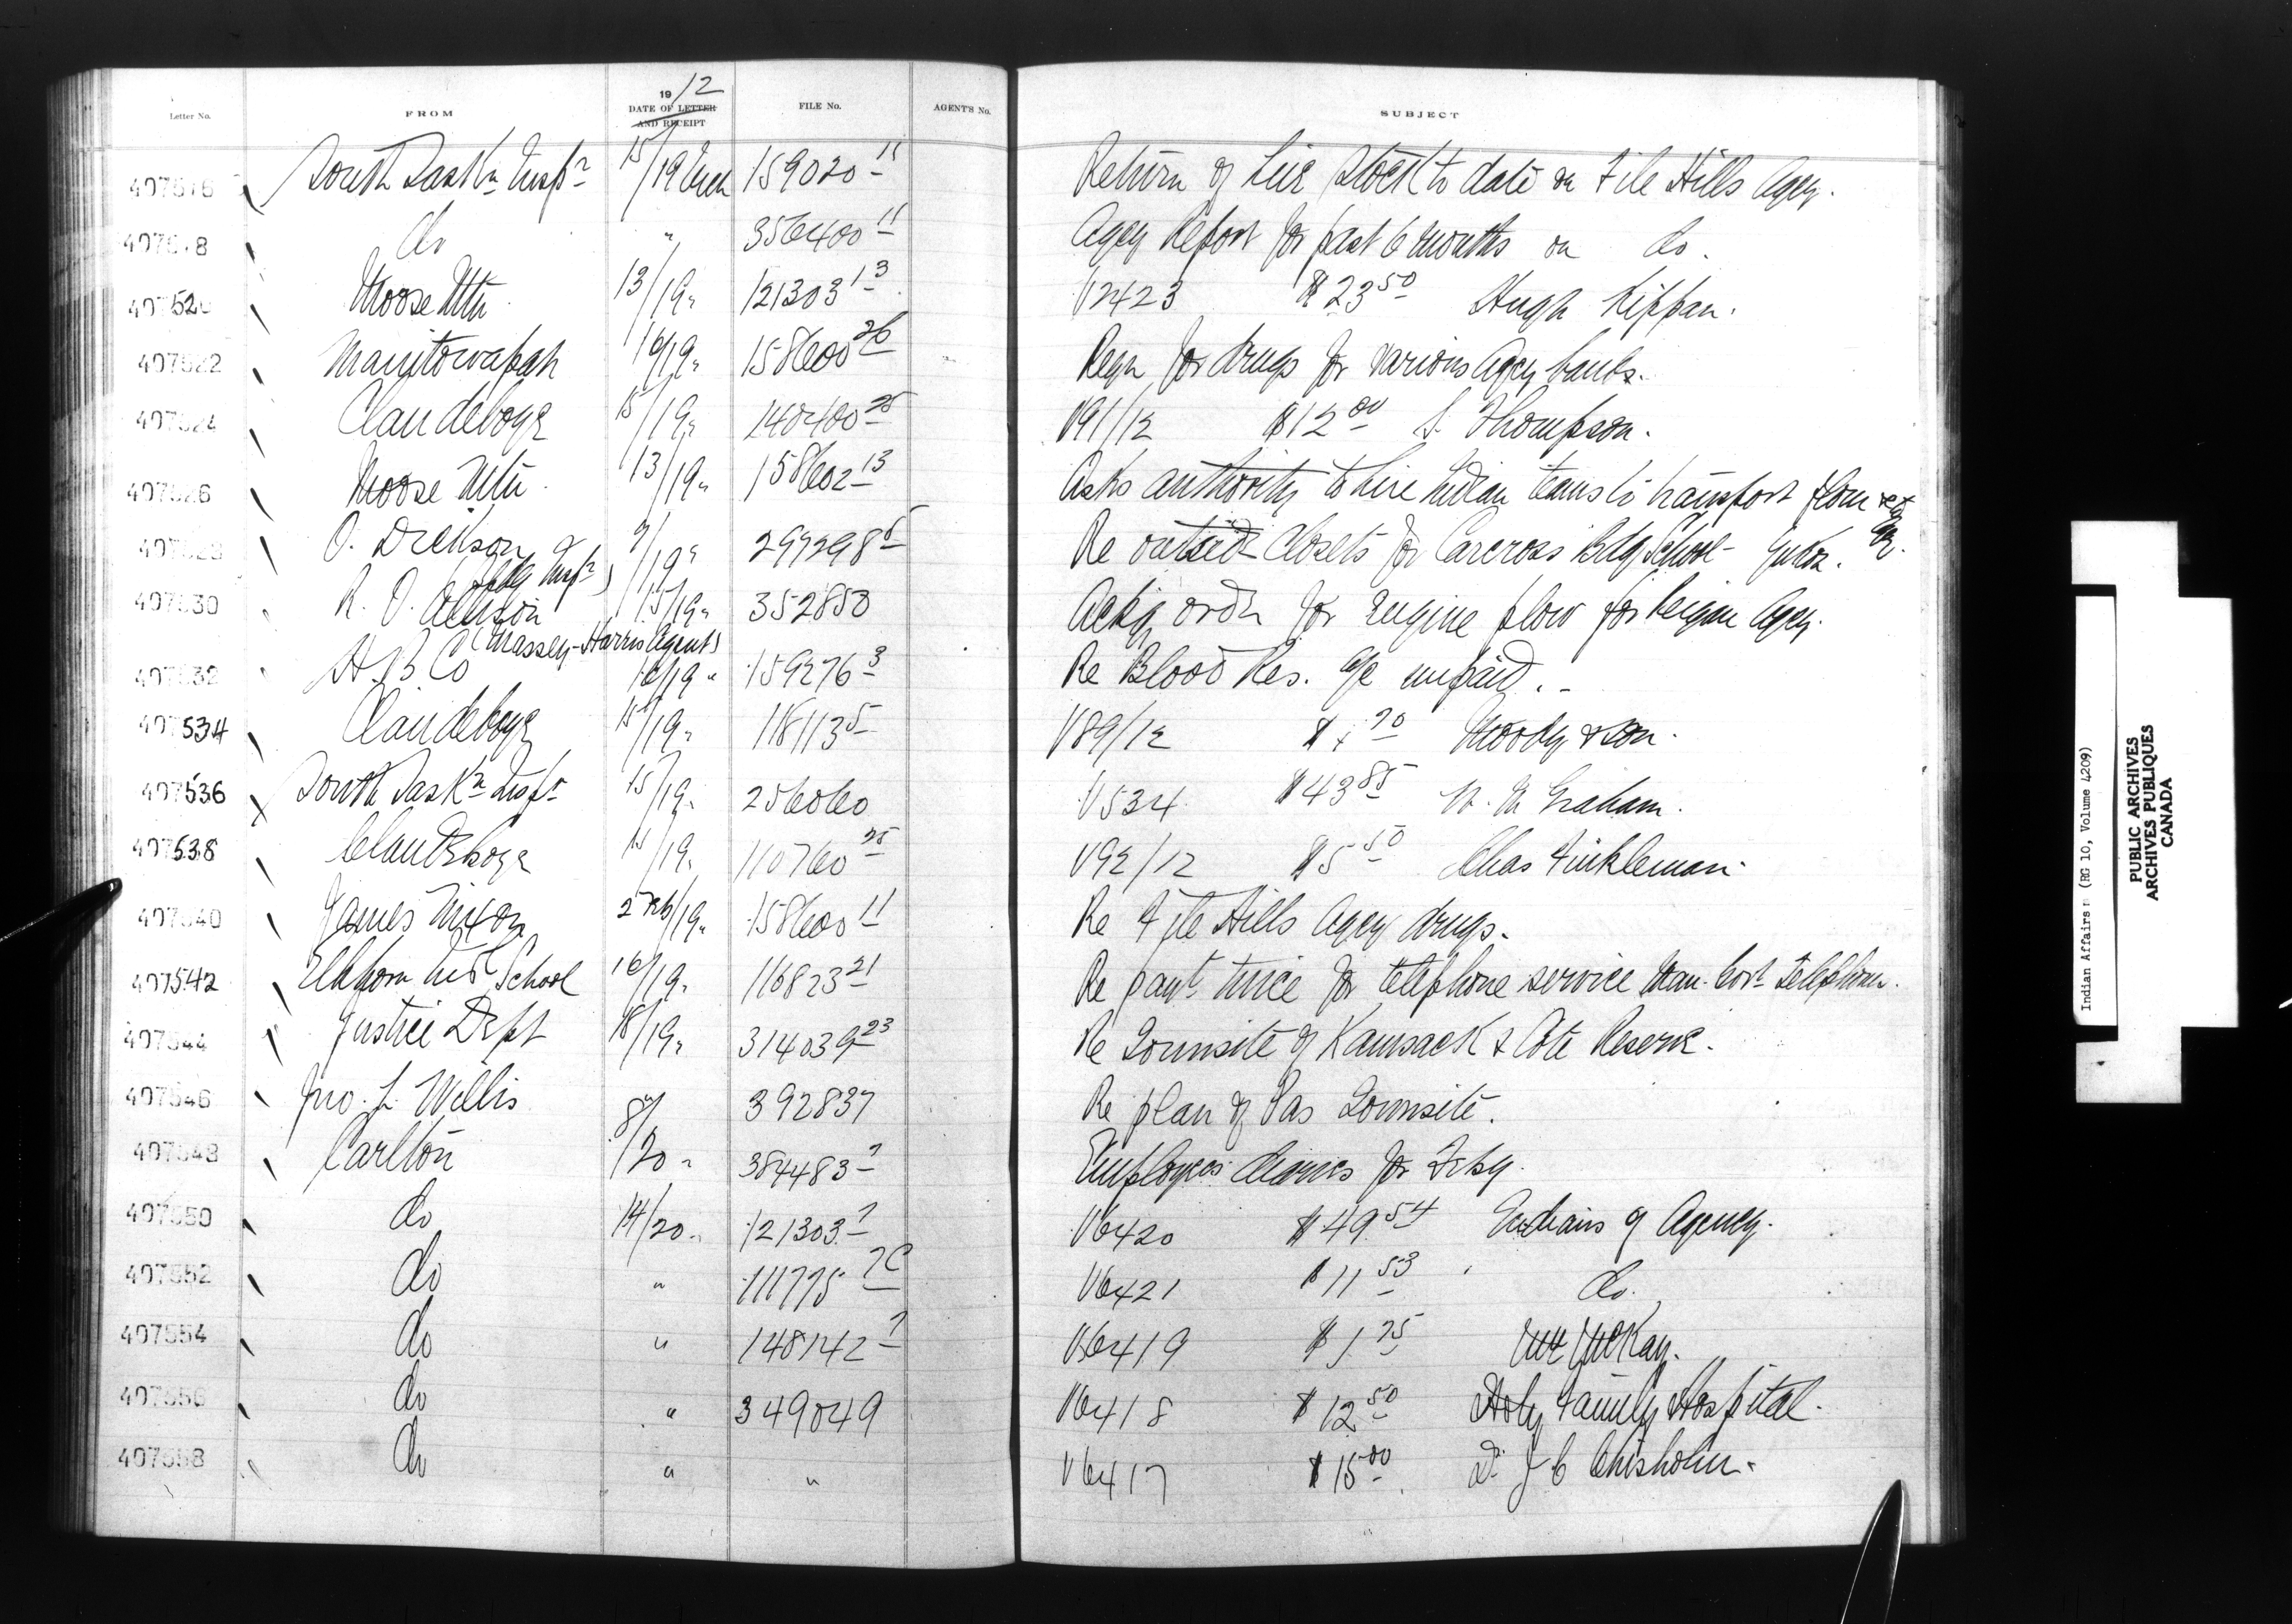 Letter No. FROM 1912 DATE OF LETTER AND RECEIPT FILE No. AGENT'S No. SUBJECT
407516 South Saskn Inspr 15/19 Mch 159020 11 Return of Live Stock to date on File Hills Agcy.
407518 do " 356400 11 Agcy Report for past 6 months on do.
407520 Moose Mtn 13/19 " 121303 13 V2423 $23 50 Hugh Kippan.
407522 Manitowapah 16/19 " 158600 26 Reqn for drugs for various Agcy bands.
407524 Clandeboye 15/19 " 140400 25 V91/12 $12 00 S. Thompson.
407526 Moose Mtn. 13/19 " 158602 13 Asks authority to hire Indian teams to transport flour etc
407528 O. Dickson 9/19 " 299298 5 Re outside closets for Carcross Bdg School - Yukon.
407530 R. O. Allison (Massey-Harris Agent) 15/19 " 352850 Ackg order for Engine plow for Peigan Agcy.
407532 H. B. Co 16/19 " 159276 3 Re Blood Res. a/c unpaid.
407534 Clandeboye 15/19 " 118113 5 V89/12 70 Moody & Son.
407536 South Saskn Inspr 15/19 " 256060 V534 $43 85 W. M. Graham.
407538 Clandeboye 15/19 " 110760 25 V92/12 $5 50 Chas Finkleman.
407540 James Nixon 2 Feb/19 " 158600 11 Re File Hills Agcy drugs.
407542 Elkhorn Ind School 16/19 " 116823 21 Re paymt twice for telephone service Man. Govt Telephones.
407544 Justice Dept 18/19 " 314039 23 Re Townsite of Kamsack & Cote Reserve.
407546 Jno. L. Wellis 392837 Re plan of Pas Townsite.
407548 Carlton 8/20 " 384483 7 Employees diaries for Feby.
407550 do 14/20 " 121303 7 V6420 $49 54 Indians of Agency.
407552 do " 111775 7C V6421 $11 53 do.
407554 do " 148142 7 V6419 $1 75 McKay.
407556 do " 349049 V6418 $12 50 Holy Family Hospital.
407558 do " " V6417 $15 00 Dr J C Chisholm.
Indian Affairs: (RG 10, Volume 4209)
PUBLIC ARCHIVES
ARCHIVES PUBLIQUES
CANADA